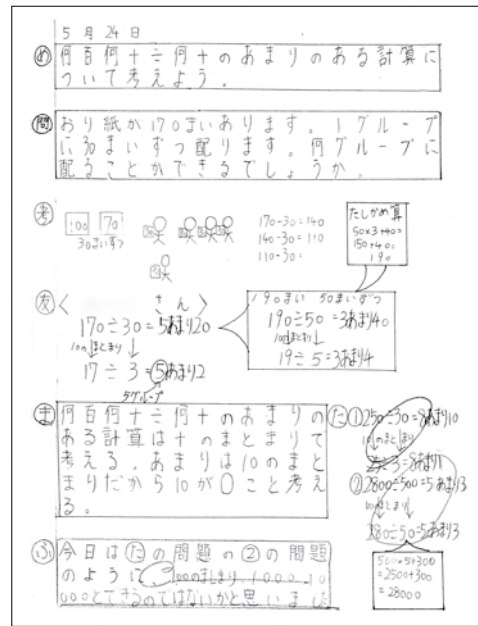 5月24日
め 何百何十÷何十のあまりのある計算に
ついて考えよう。
問 おり紙が170まいあります。1グループ
に30まいずつ配ります。何グループに
配ることができるでしょうか。
考
100 70
30まいずつ
170-30=140
140-30=110
110-30=
たしかめ算
50×3+40=
150+40=
190
友〈 さん〉
170÷30=5あまり20
10のまとまり
17÷3=5あまり2
5グループ
190まい 50まいずつ
190÷50=3あまり40
10のまとまり
19÷5=3あまり4
ま 何百何十÷何十のあまりの
ある計算は十のまとまりで
考える。あまりは10のまと
まりだから10が〇こと考え
る。
た ① 250÷30=8あまり10
10のまとまり
25÷3=8あまり1
② 2800÷500=5あまり3
280÷50=5あまり3
500×5+300
=2500+300
=28000
ふ 今日はたの問題の②の問題
のように 100のまとまり、1000、10
000とできるのではないかと思いました